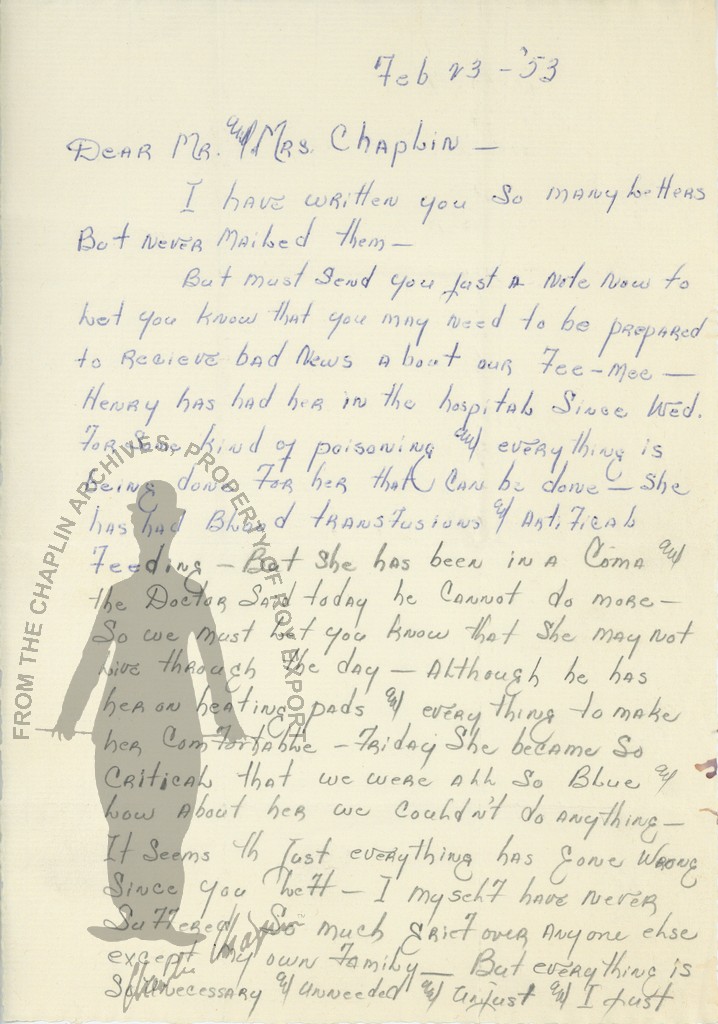 Feb 23 - '53
Dear Mr. and Mrs. Chaplin -
I have written you so many letters
But never mailed them -
But must send you just a note now to
let you know that you may need to be prepared
to recieve bad news about our Fee-Mee -
Henry has had her in the hospital since Wed.
For some kind of poisoning and everything is
being done for her that can be done - She
has had Blood transfusions and Artifical
Feeding - But she has been in a Coma and
the Doctor said today he cannot do more -
So we must let you know that she may not
live through the day - Although he has
her on heating pads and everything to make
her comfortable - Friday she became so
critical that we were all so Blue and
low about her we couldn't do anything -
It seems th Just everything has gone wrong
since you left - I myself have never
suffered so much grief over anyone else
except my own family - But everything is
so unnecessary and unneeded and unjust and I just
FROM THE CHAPLIN ARCHIVES. PROPERTY OF ROY EXPORT
Charlie Chaplin